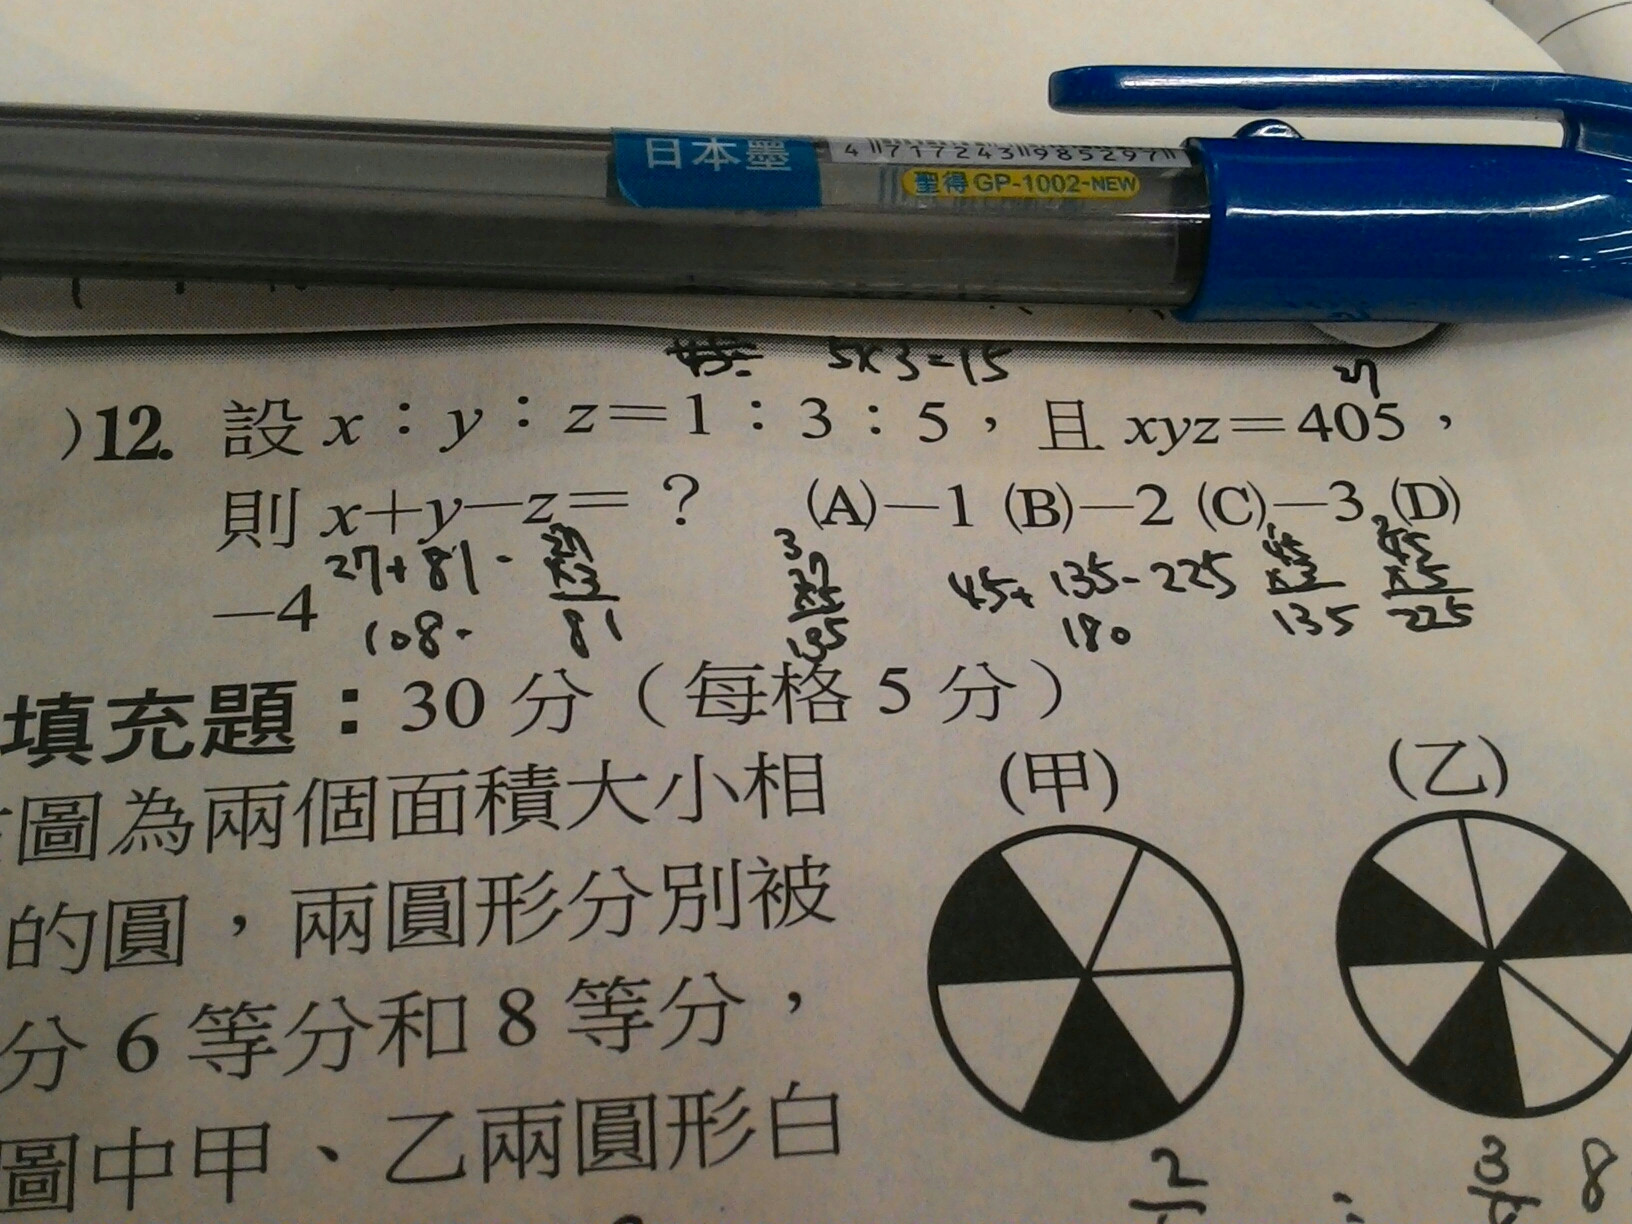 日本墨
4 717243 985297
聖得 GP-1002-NEW
5×3=15
27
)12. 設 x：y：z＝1：3：5，且 xyz＝405，
則 x＋y－z＝？ (A)－1 (B)－2 (C)－3 (D)
－4
27+81-
108-
81
3
135
45+ 135-225
180
45
135
45
×5
225
填充題：30 分（每格 5 分）
圖為兩個面積大小相
的圓，兩圓形分別被
分 6 等分和 8 等分，
圖中甲、乙兩圓形白
(甲)
(乙)
2
:
3
8